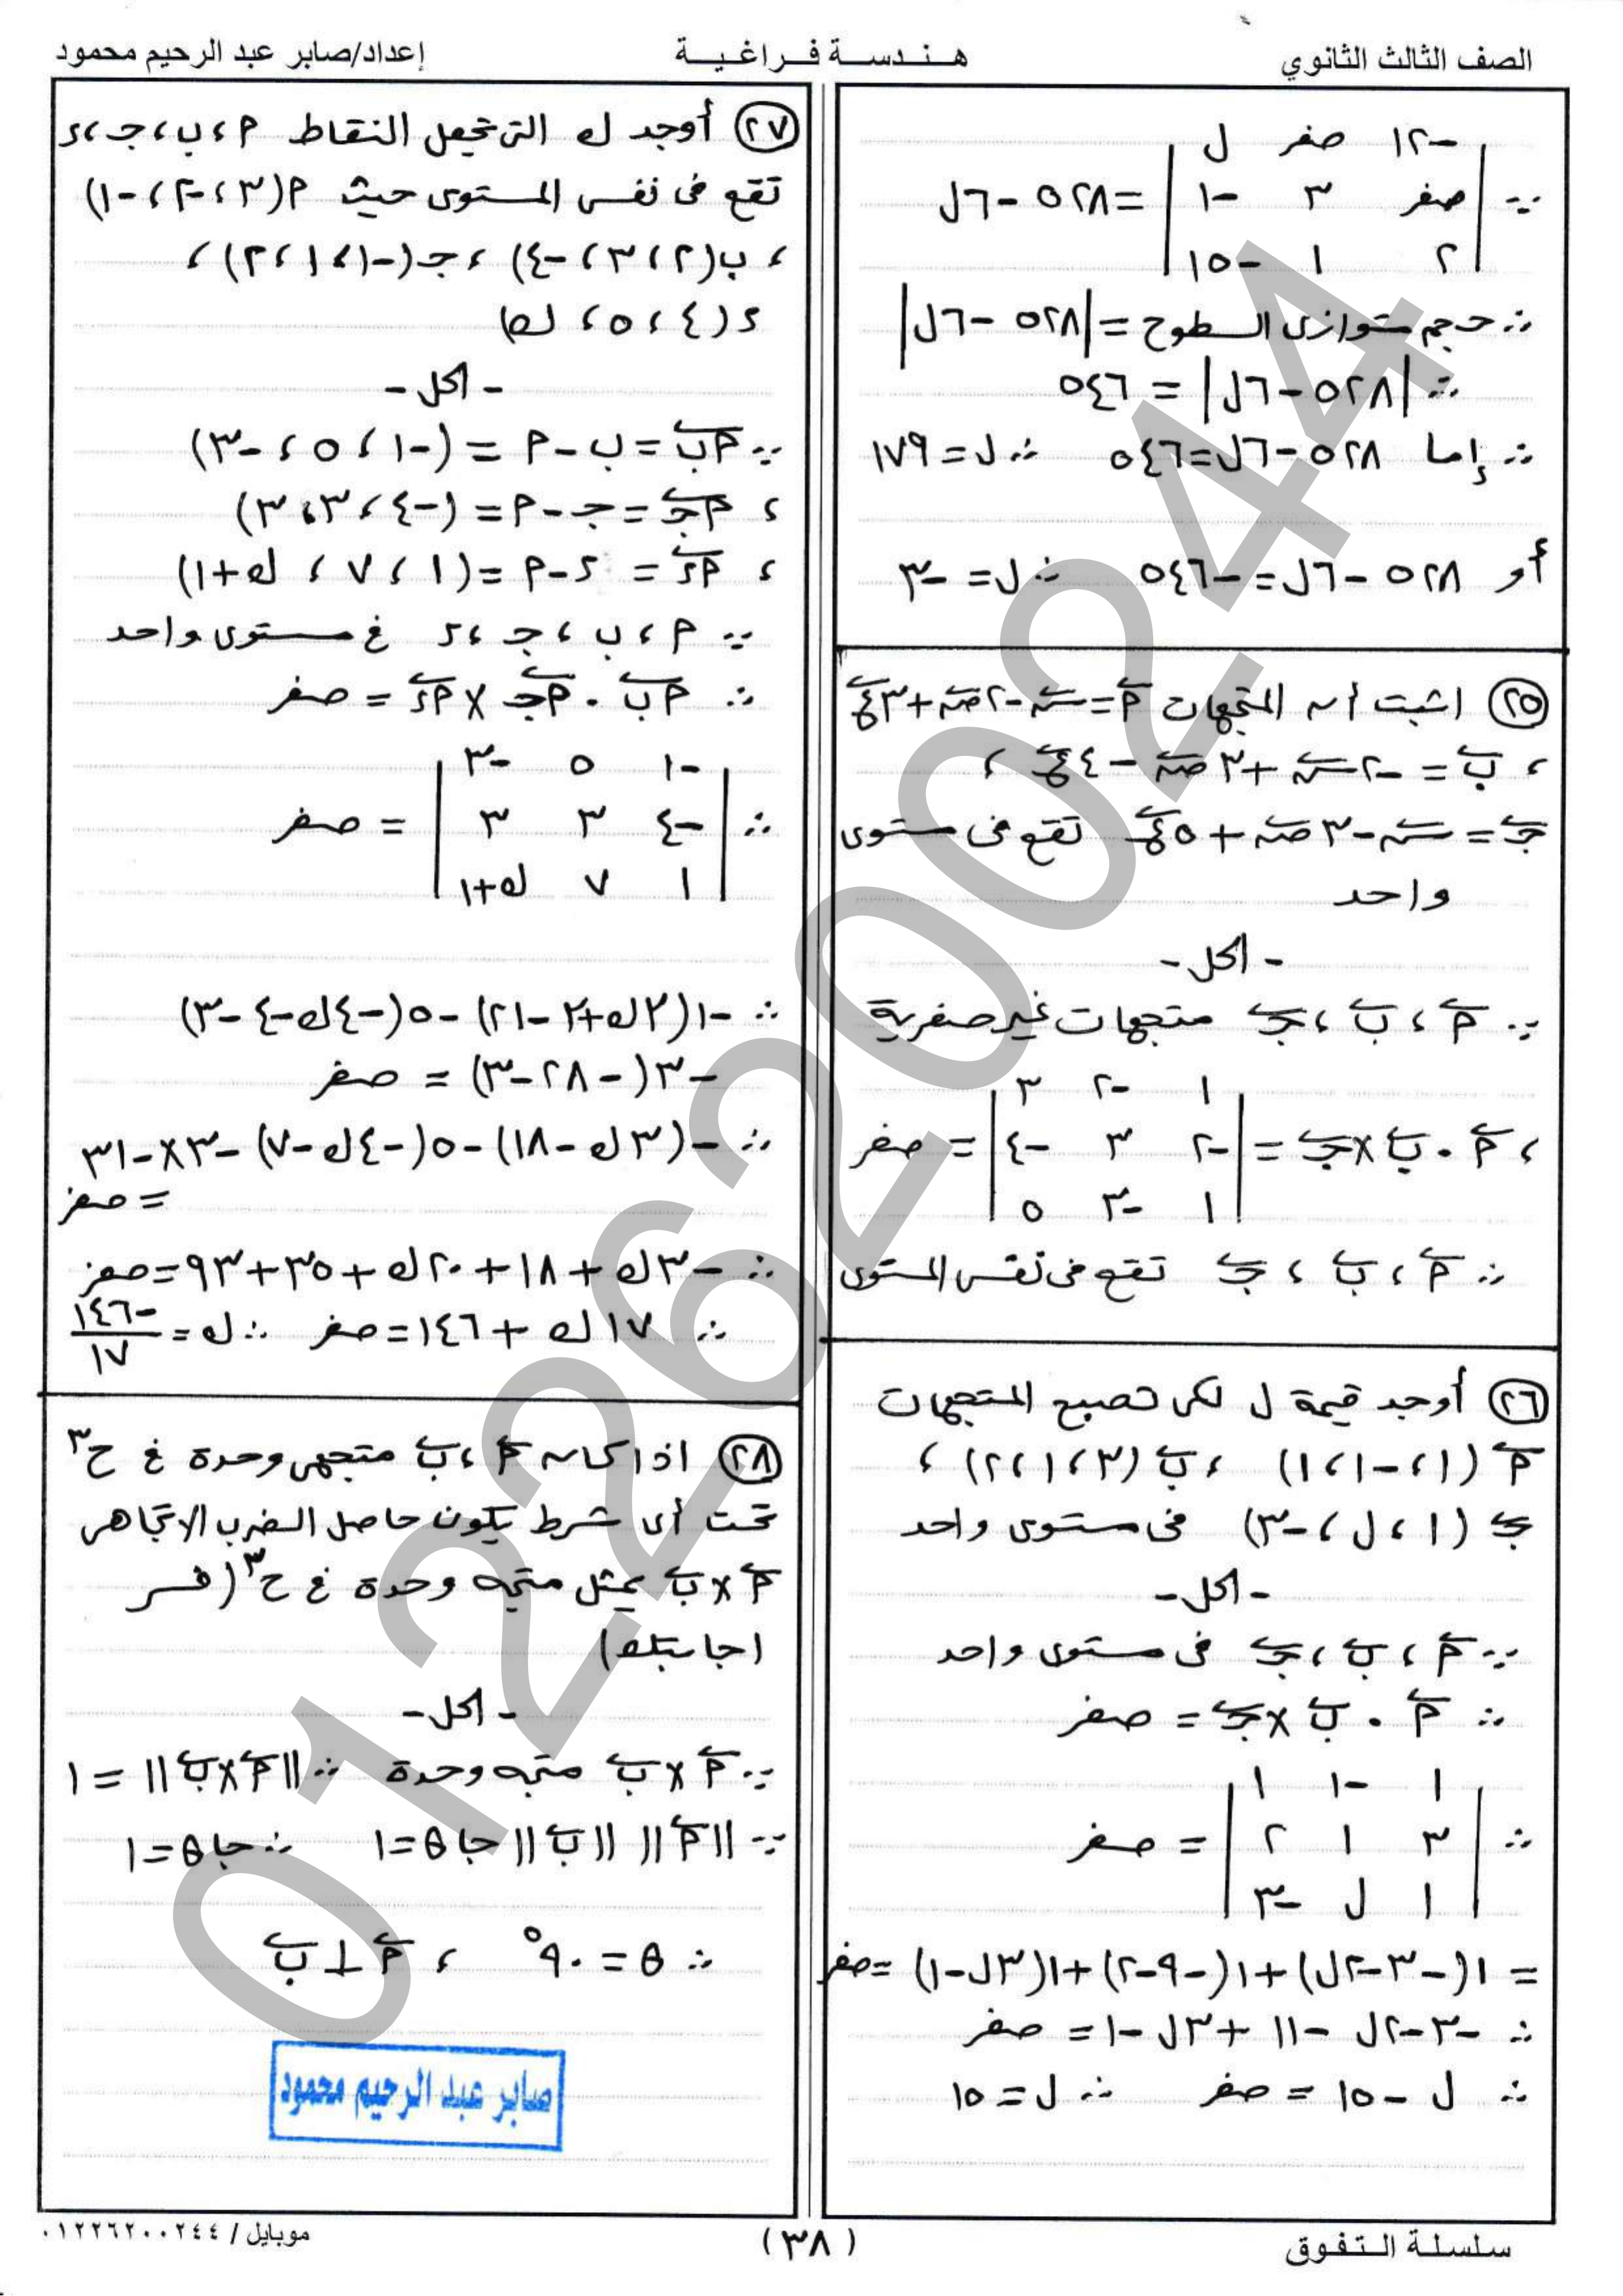 الصف الثالث الثانوي
هندسة فراغية
إعداد/صابر عبد الرحيم محمود
-١٢ صفر ل
∵ | صفر ٣ -١ | = ٥٢٨ - ٦ل
٢ ١ -١٥
∴ حجم متوازى السطوح = |٥٢٨ - ٦ل|
∴ |٥٢٨ - ٦ل| = ٥٤٦
∴ إما ٥٢٨ - ٦ل = ٥٤٦ ∴ ل = ١٧٩
أو ٥٢٨ - ٦ل = -٥٤٦ ∴ ل = -٣
(٢٥) اثبت أن المتجهات أ = س - ٢ص + ٣ع
، ب = -٢س + ٣ص - ٤ع ،
جـ = س - ٣ص + ٥ع تقع فى مستوى
واحد
- الحل -
∵ أ ، ب ، جـ متجهات غير صفرية
١ -٢ ٣
، أ . ب × جـ = | -٢ ٣ -٤ | = صفر
١ -٣ ٥
∴ أ ، ب ، جـ تقع فى نفس المستوى
(٢٦) أوجد قيمة ل لكى تصبح المتجهات
أ (١ ، -١ ، ١) ، ب (٣ ، ١ ، ٢) ،
جـ (١ ، ل ، -٣) فى مستوى واحد
- الحل -
∵ أ ، ب ، جـ فى مستوى واحد
∴ أ . ب × جـ = صفر
١ -١ ١
∴ | ٣ ١ ٢ | = صفر
١ ل -٣
= ١(-٣-٢ل) + ١(-٩-٢) + ١(٣ل-١) = صفر
∴ -٣-٢ل -١١ + ٣ل -١ = صفر
∴ ل - ١٥ = صفر ∴ ل = ١٥
(٢٧) أوجد ك التى تجعل النقاط أ ، ب ، جـ ، ء
تقع فى نفس المستوى حيث أ(٣ ، -٢ ، -١)
، ب(٢ ، ٣ ، -٤) ، جـ(-١ ، ١ ، ٢) ،
ء(٤ ، ٥ ، ك)
- الحل -
∵ أب = ب - أ = (-١ ، ٥ ، -٣)
، أجـ = جـ - أ = (-٤ ، ٣ ، ٣)
، أء = ء - أ = (١ ، ٧ ، ك+١)
∵ أ ، ب ، جـ ، ء فى مستوى واحد
∴ أب . أجـ × أء = صفر
-١ ٥ -٣
∴ | -٤ ٣ ٣ | = صفر
١ ٧ ك+١
∴ -١(٣ك+٣-٢١) -٥(-٤ك-٤-٣)
-٣(-٢٨-٣) = صفر
∴ -(٣ك-١٨) -٥(-٤ك-٧) -٣×-٣١
= صفر
∴ -٣ك + ١٨ + ٢٠ك + ٣٥ + ٩٣ = صفر
∴ ١٧ك + ١٤٦ = صفر ∴ ك = -١٤٦/١٧
(٢٨) اذا كان أ ، ب متجهى وحدة فى ح³
تحت أى شرط يكون حاصل الضرب الاتجاهى
أ × ب يمثل متجه وحدة فى ح³ (فسر
اجابتك)
- الحل -
∵ أ × ب متجه وحدة ∴ ||أ × ب|| = ١
∵ ||أ|| ||ب|| جا θ = ١ ∴ جا θ = ١
∴ θ = ٩٠° ، أ ⊥ ب
صابر عبد الرحيم محمود
سلسلة التفوق
(٣٨)
موبايل / ٠١٢٢٦٢٠٠٢٤٤
01226200244